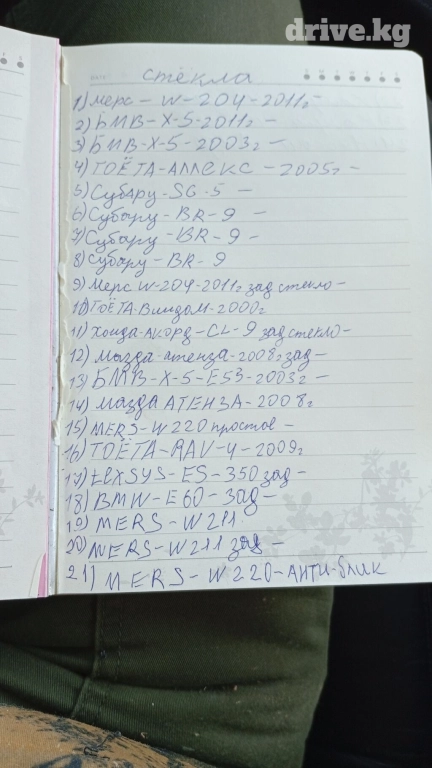 drive.kg
стёкла
1) мерс - W - 204 - 2011г -
2) БМВ - X - 5 - 2011г -
3) БМВ - X - 5 - 2003г -
4) ТОЁТА - АЛЛЕКС - 2005г -
5) Субару - SG - 5 -
6) Субару - BR - 9 -
7) Субару - BR - 9 -
8) Субару - BR - 9
9) Мерс W-204-2011г зад стекло -
10) ТОЁТА. Виндом - 2000г
11) хонда - Акорд - CL - 9 зад стекло -
12) мазда - атенза - 2008г зад -
13) БМВ - X - 5 - E53 - 2003г -
14) мозда АТЕНЗА - 2008г
15) MERS - W220 простое -
16) ТОЁТА - RAV - 4 - 2009г
17) LEXSYS - ES - 350 зад -
18) BMW - E60 - зад -
19) MERS - W211
20) MERS - W211 зад -
21) MERS - W220 - АНТИ-блик